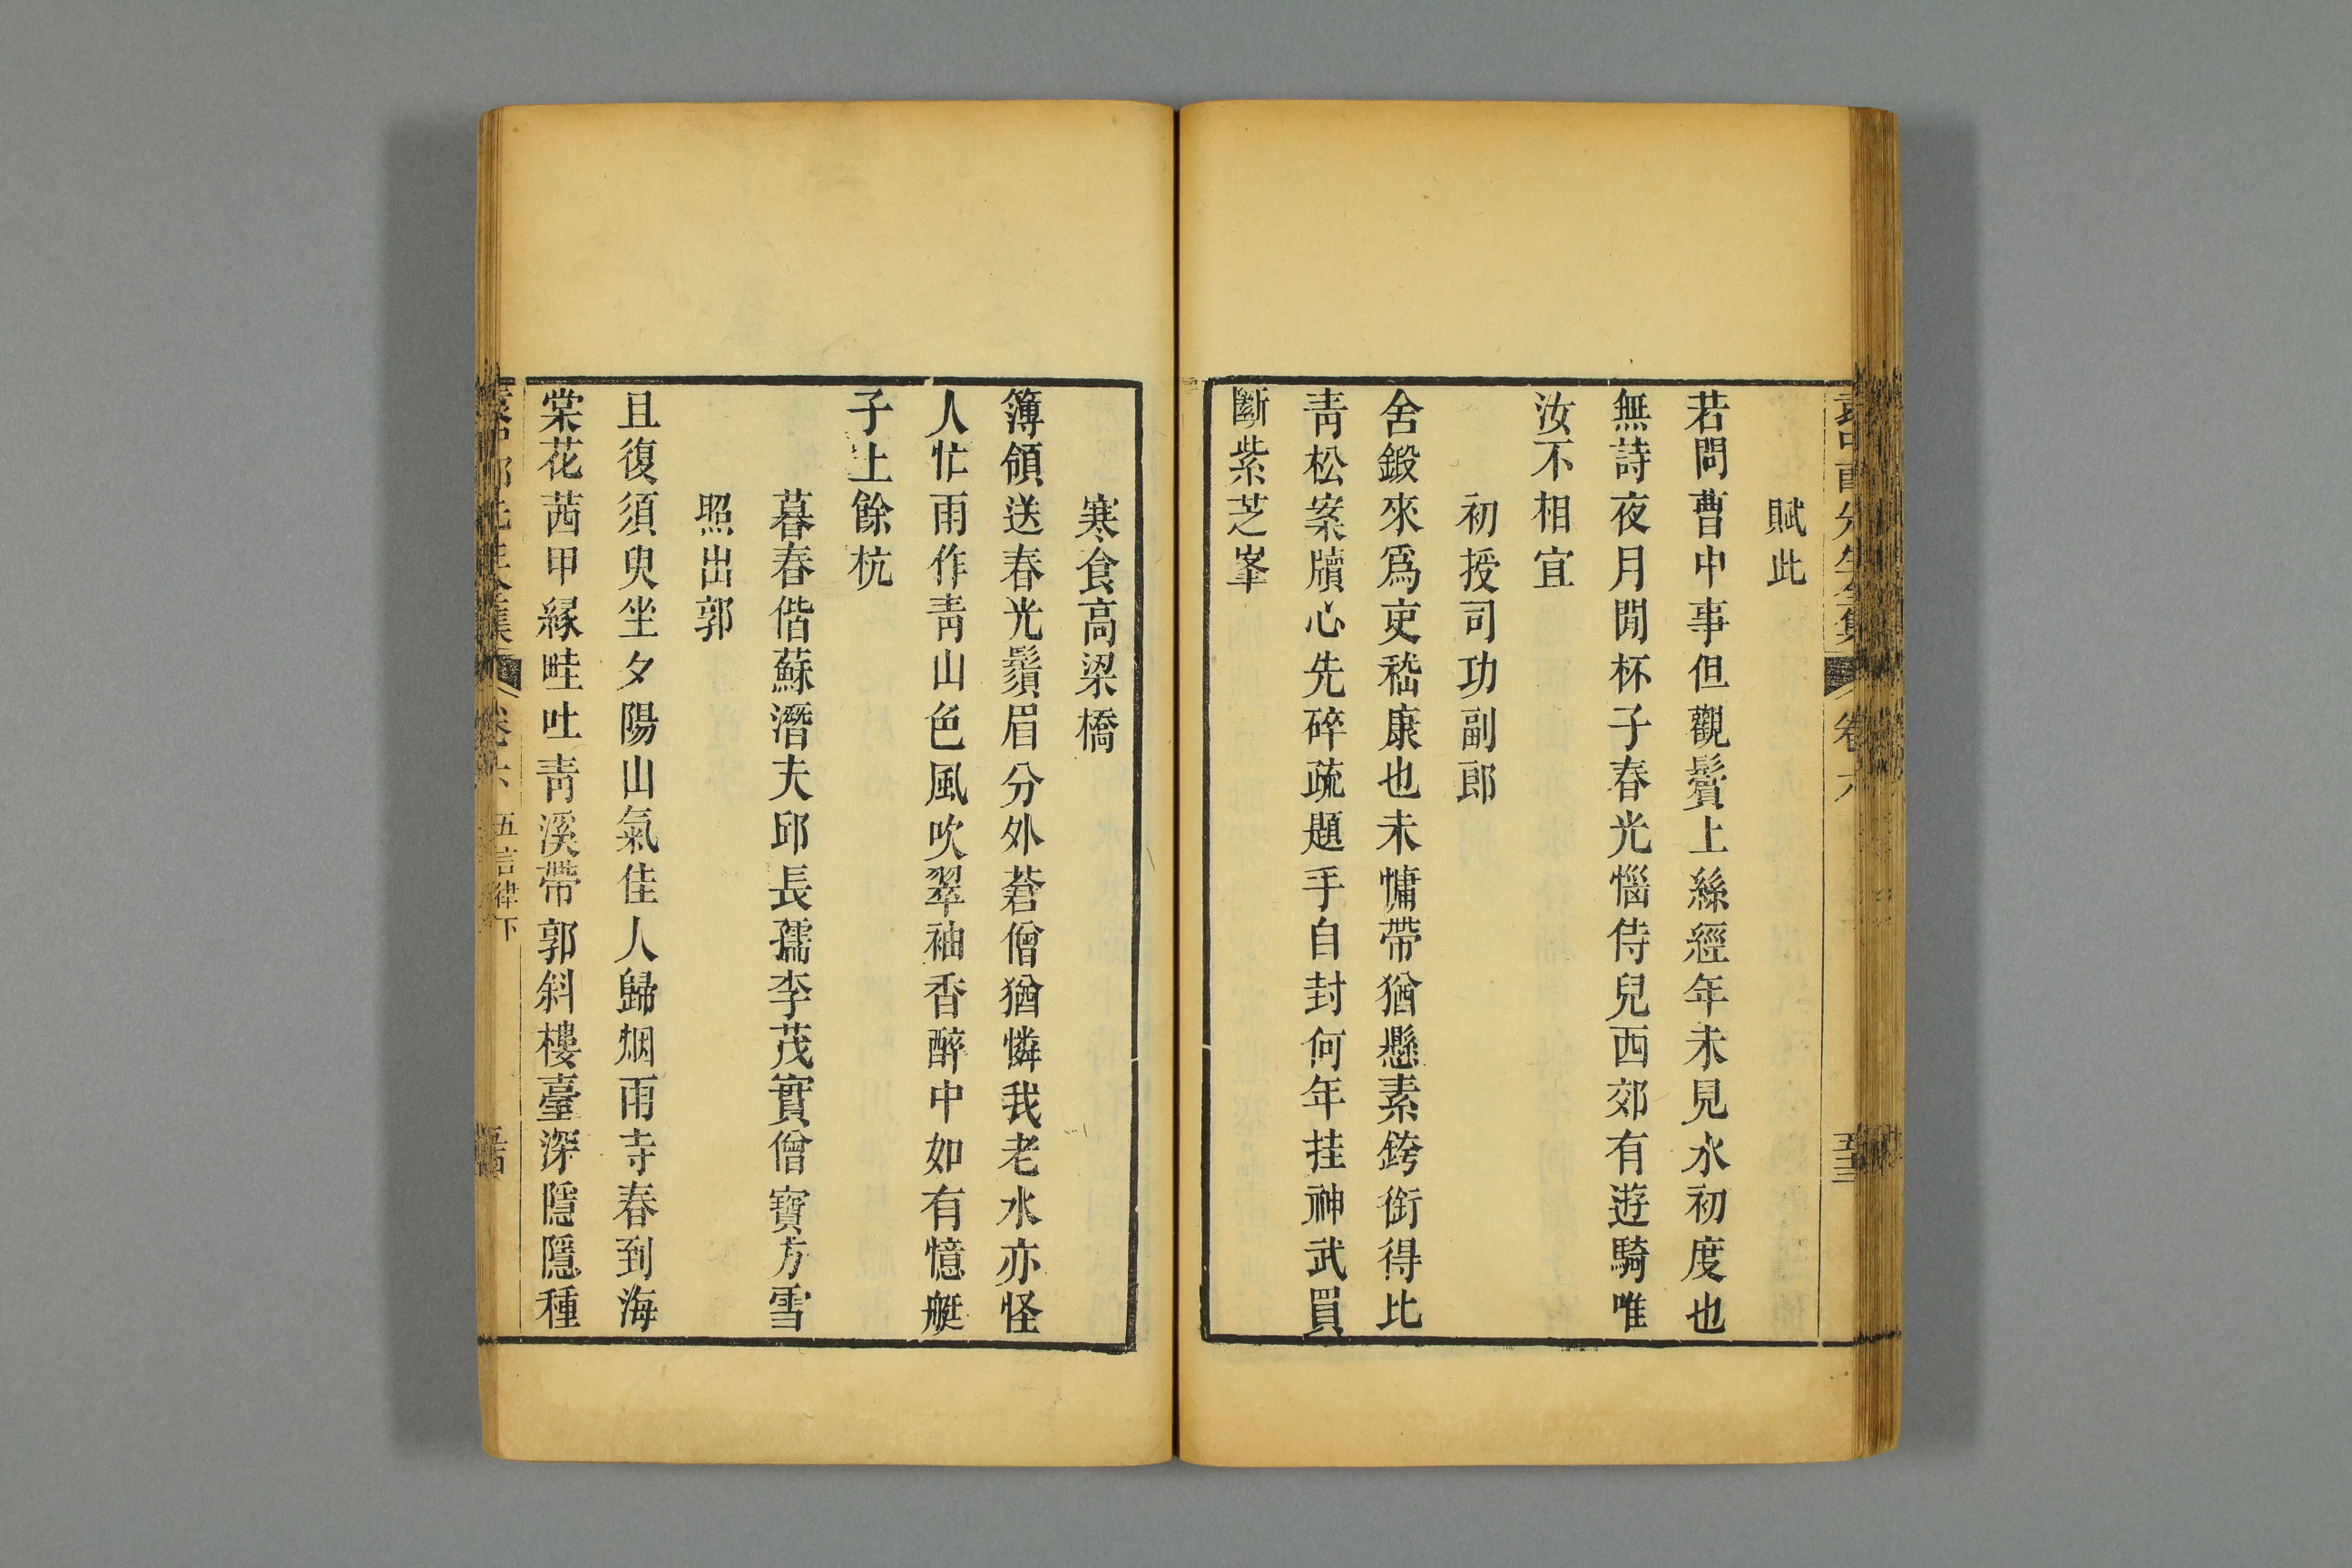 賦此
若問曹中事但觀鬢上絲經年未見水初度也
無詩夜月閒杯子春光惱侍兒西郊有遊騎唯
汝不相宜
初授司功副郎
舍鍛來爲吏嵇康也未慵帶猶懸素銙銜得比
靑松案牘心先碎疏題手自封何年挂神武買
斷紫芝峯
寒食高梁橋
簿領送春光鬚眉分外蒼僧猶憐我老水亦怪
人忙雨作靑山色風吹翠袖香醉中如有憶艇
子上餘杭
暮春偕蘇潛夫邱長孺李茂實僧寶方雪
照出郭
且復須臾坐夕陽山氣佳人歸烟雨寺春到海
棠花茜甲緣畦吐靑溪帶郭斜樓臺深隱隱種
袁中郎先生全集 卷六 五言律下